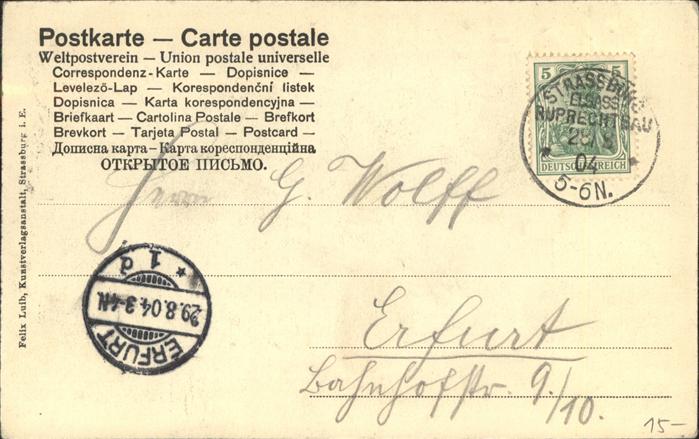 Postkarte — Carte postale
Weltpostverein — Union postale universelle
Correspondenz-Karte — Dopisnice —
Levelező-Lap — Korespondenční listek
Dopisnica — Karta korespondencyjna —
Briefkaart — Cartolina Postale — Brefkort
Brevkort — Tarjeta Postal — Postcard —
Дописна карта — Карта кореспонденційна
ОТКРЫТОЕ ПИСЬМО.
5 5
DEUTSCHES REICH
STRASSBURG
ELSASS
RUPRECHTSAU
28 8
04
5-6N.
Herrn G. Wolff
ERFURT
29.8.04.3-4N.
* 1 d
Erfurt
Bahnhofstr. 9/10.
Felix Luib, Kunstverlagsanstalt, Strassburg i. E.
15-